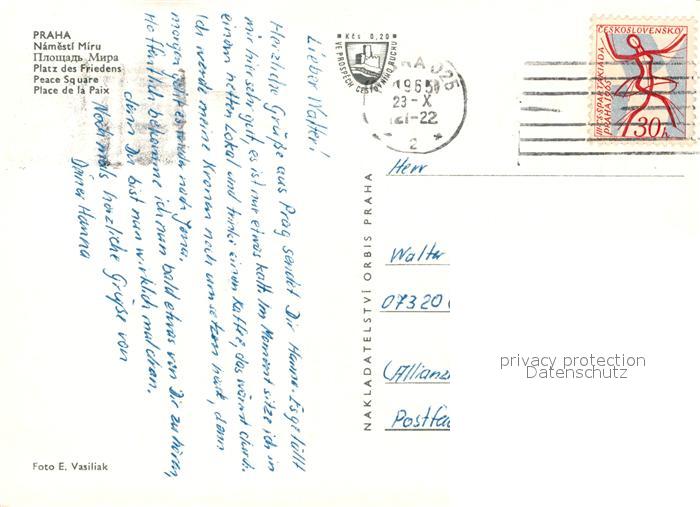 PRAHA
Náměstí Míru
Площадь Мира
Platz des Friedens
Peace Square
Place de la Paix
Lieber Walter!
Herzliche Grüße aus Prag sendet Dir Hanna. Es gefällt
mir hier sehr gut, es ist nur etwas kalt. Im Moment sitze ich in
einem netten Lokal und trinke einen Kaffee, das wärmt durch.
Ich werde meine Kronen noch umsetzen, denn
morgen geht es wieder nach Jena.
Hoffentlich bekomme ich nun bald etwas von Dir zu hören,
denn Du bist nun wirklich mal dran.
Nochmals herzliche Grüße von
Deiner Hanna
Foto E. Vasiliak
NAKLADATELSTVÍ ORBIS PRAHA
Kčs 0,20
VE PROSPĚCH CESTOVNÍHO RUCHU
PRAHA 025
23-X
21-22
2
ČESKOSLOVENSKO
III. CELOSTÁTNÍ SPARTAKIÁDA
PRAHA 1965
30h
Herr
Walter
07320
(Allianz
Postfac
privacy protection
Datenschutz